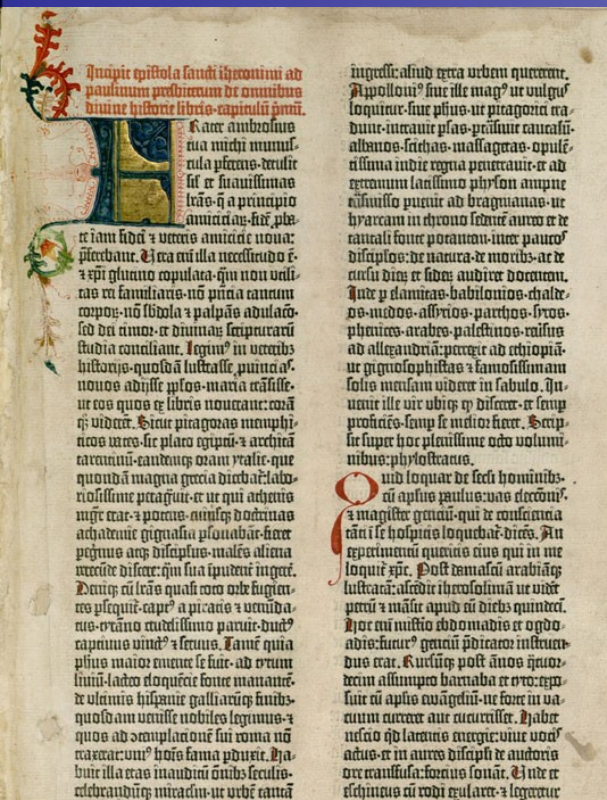 Incipit epistola sancti iheronimi ad
paulinum presbiterum de omnibus
divine historie libris·capitulū pmū.
Frater ambrosius
tua michi munus-
cula ꝑferens·detulit
sil' et suavissimas
lrās·q̄ a principio
amiciciaꝝ·fidē ꝓba-
te iam fidei ⁊ veteris amicicie nova:
ꝓferebant. Vera em̄ illa necessitudo ē·
⁊ xp̄i glutino copulata·qm̄ non utili-
tas rei familiaris·nō pn̄cia tantum
corpoꝝ·nō sb̓dola ⁊ palpās adulacō·
sed dei timor·et divinaꝝ scripturarū
studia conciliant. Legimꝰ in veteribꝫ
historijs·quosdā lustrasse ꝓuīcias·
novos adijsse ꝓplos·maria trāsisse·
ut eos quos ex libris noverant: corā
qꝫ viderēt. Sicut pitagoras memphi-
ticos vates·sic plato egiptū·⁊ architā
tarentinū·eandemqꝫ oram ytalie·que
quondā magna grecia dicebat̄: labo-
riosissime peragͣvit·et ut qui athenis
mgr̄ erat·⁊ potens·cuiusqꝫ doctrinas
achademie gignasia ꝑsonabāt·fieret
pegrinus atqꝫ discipulus·malēs aliena
verecūde discere: qͣm sua īpudent̄ ingerē.
Deniqꝫ cū lrās quasi toto orbe fugien-
tes ꝑsequit̄·captꝰ a piratis ⁊ venūda-
tus·tyrāno crudelissimo paruit·ductꝰ
captivus vinctꝰ ⁊ servus. Tamē quia
phūs maior emente se fuit· ad tytum
liviū·lacteo eloquēcie fonte manantē·
de ultimis hispanie galliarūqꝫ finibꝫ·
quosdam venisse nobiles legimus·⁊
quos ad ꝯtemplacionē sui roma nō
traxerat: uniꝰ hoīs fama ꝑduxit. Ha-
buit illa etas inauditū oīnibꝫ seculis·
celebrandūqꝫ miraclm̄·ut urbē tantā
ingressi: aliud extra urbem quererent.
Appolloniꝰ sive ille magꝰ ut vulgꝰ
loquitur·sive phūs·ut pitagorici tra-
dunt·intravit ꝑsas·ꝑtrāsivit caucasū·
albanos·scithas·massagetas·opulē-
tissima indie regna penetravit·et ad
extremum latissimo physon ampne
trāsmisso pervenit ad bragmanas·ut
hyarcam in throno sedentē aureo et de
tantali fonte potantem·inter paucos
discipl̄os·de natura·de moribꝫ·ac de
cursu dierꝫ et siderꝫ audiret docentem.
Inde ꝑ elamitas·babilonios·chalde-
os·medos·assyrios·parthos·syros·
phenices·arabes·palestinos·reversus
ad allexandriā: ꝑrexit ad ethiopiā·
ut gignosophistas ⁊ famosissimam
solis mensam videret in sabulo. In-
venit ille vir ubiqꝫ qͦd disceret·et semꝑ
proficiēs·semꝑ se melior fieret. Scrip-
sit super hoc plenissime octo volumi-
nibus: phylostratus.
Quid loquar de secli hominibꝫ·
cū apl̄us paulus: vas elecc̄oniꝰ·
⁊ magister genciū·qui de consciencia
tāti ī se hospitis loquebat̄·dicēs. An
experimentū queritis eius qui in me
loquit̄ xp̄c. Post damascū arabiāqꝫ
lustratā: ascēdit iherosolimā ut vidēt
petrū ⁊ māsit apud eū diebꝫ quindecī.
Hoc em̄ misterio ebdomadis et ogdo-
adis: futurꝰ genciū p̄dicator instruen-
dus erat. Rursūqꝫ post ānos qͣtuor-
decim assumpto barnaba et tyto: expo-
suit cū apl̄is ewāgeliū·ne forte in va-
cuum curreret aut cucurrisset. Habet
nescio qͦd latentis energie: vive vocis
actus·et in aures discipl̄i de auctoris
ore transfusa: forcius sonat̄. Unde et
eschineus cū rodi exularet·⁊ legeretur